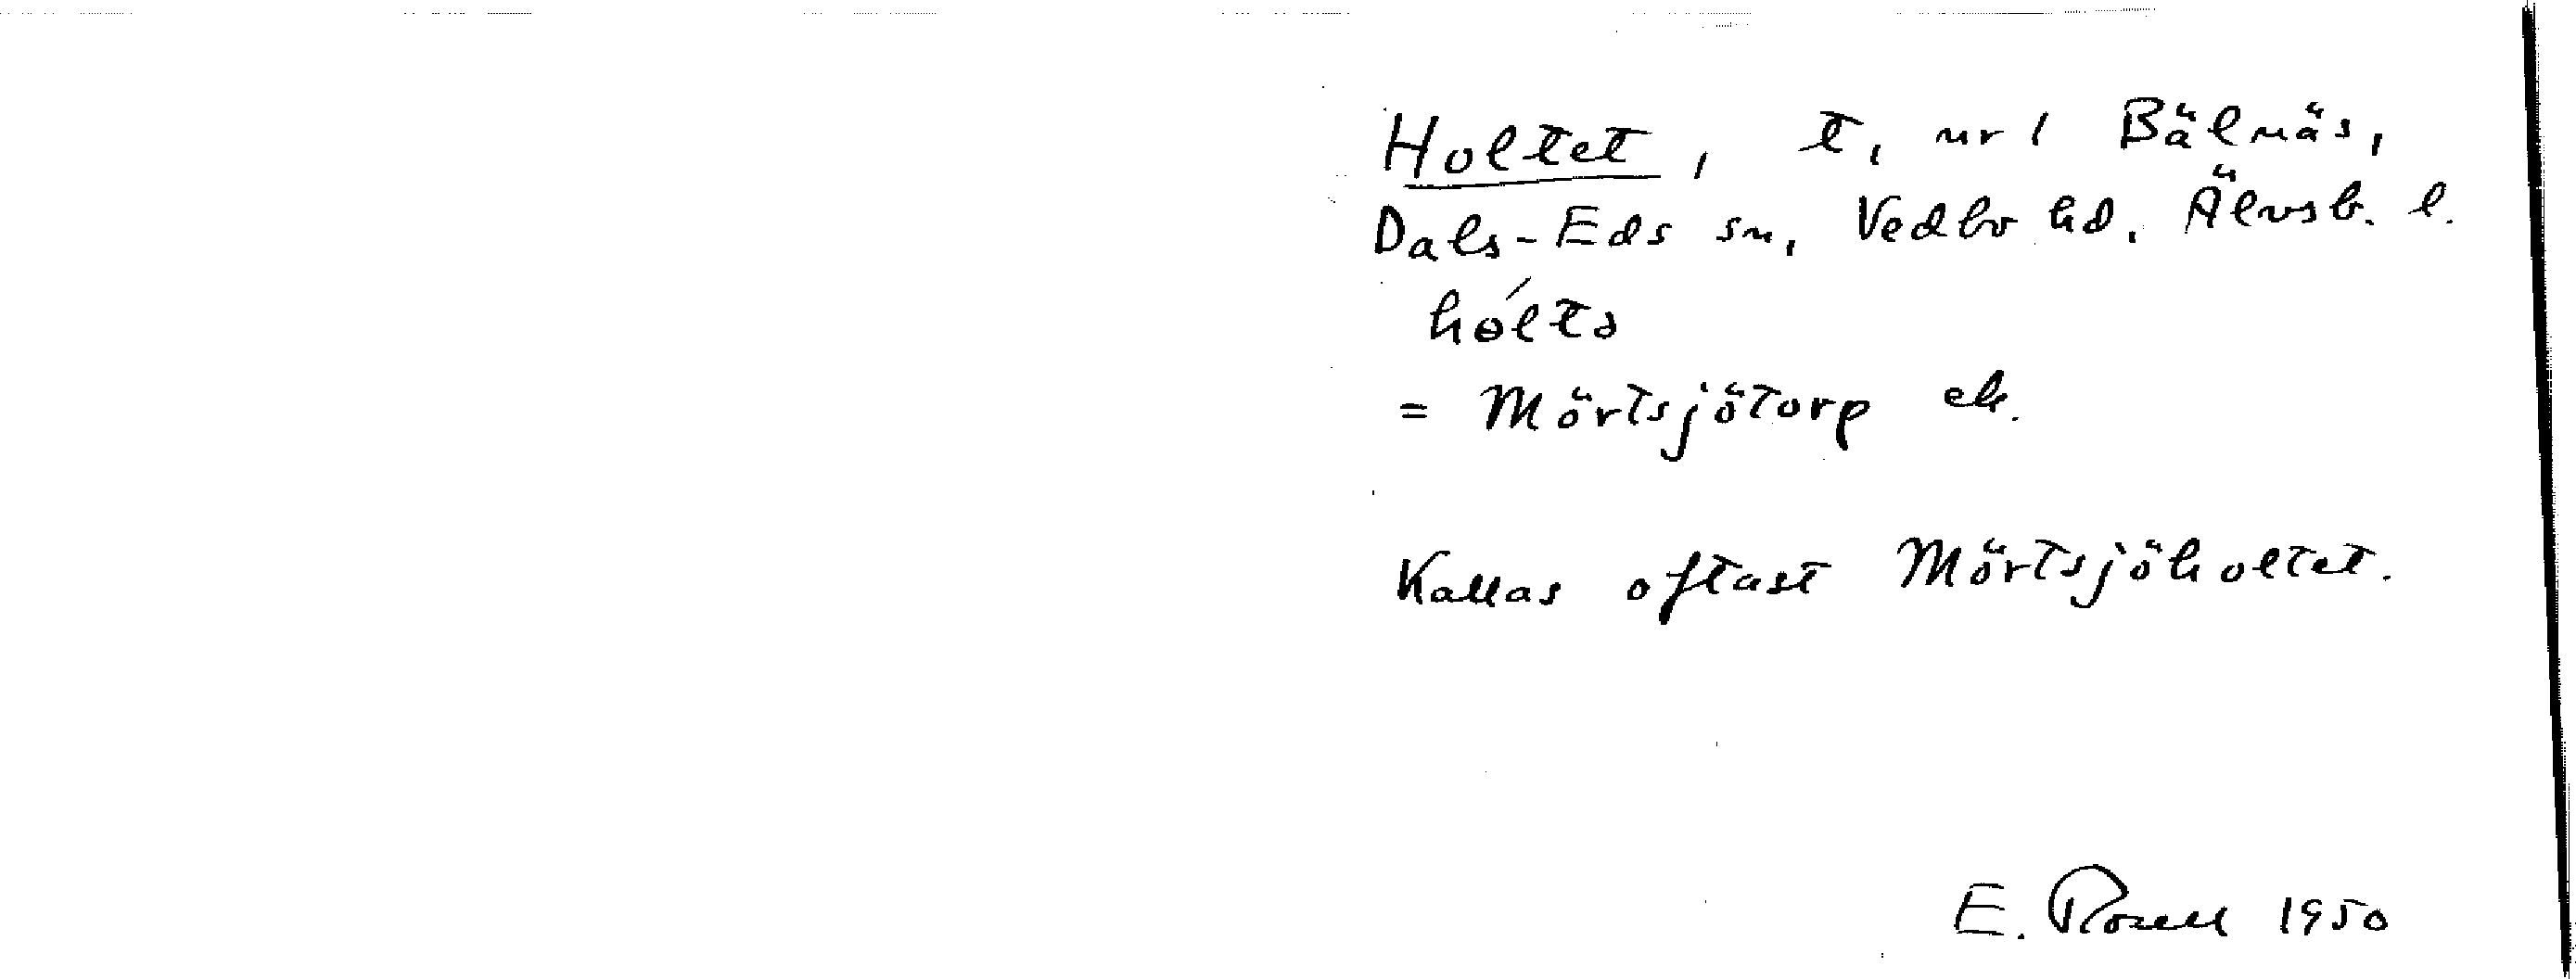 Holtet, t, nr 1 Bälnäs,
Dals-Eds sn, Vedbo hd, Älvsb. l.
hɵ́ltə
= Mörtsjötorp ek.
Kallas oftast Mörtsjöholtet.
E. Rosell 1950